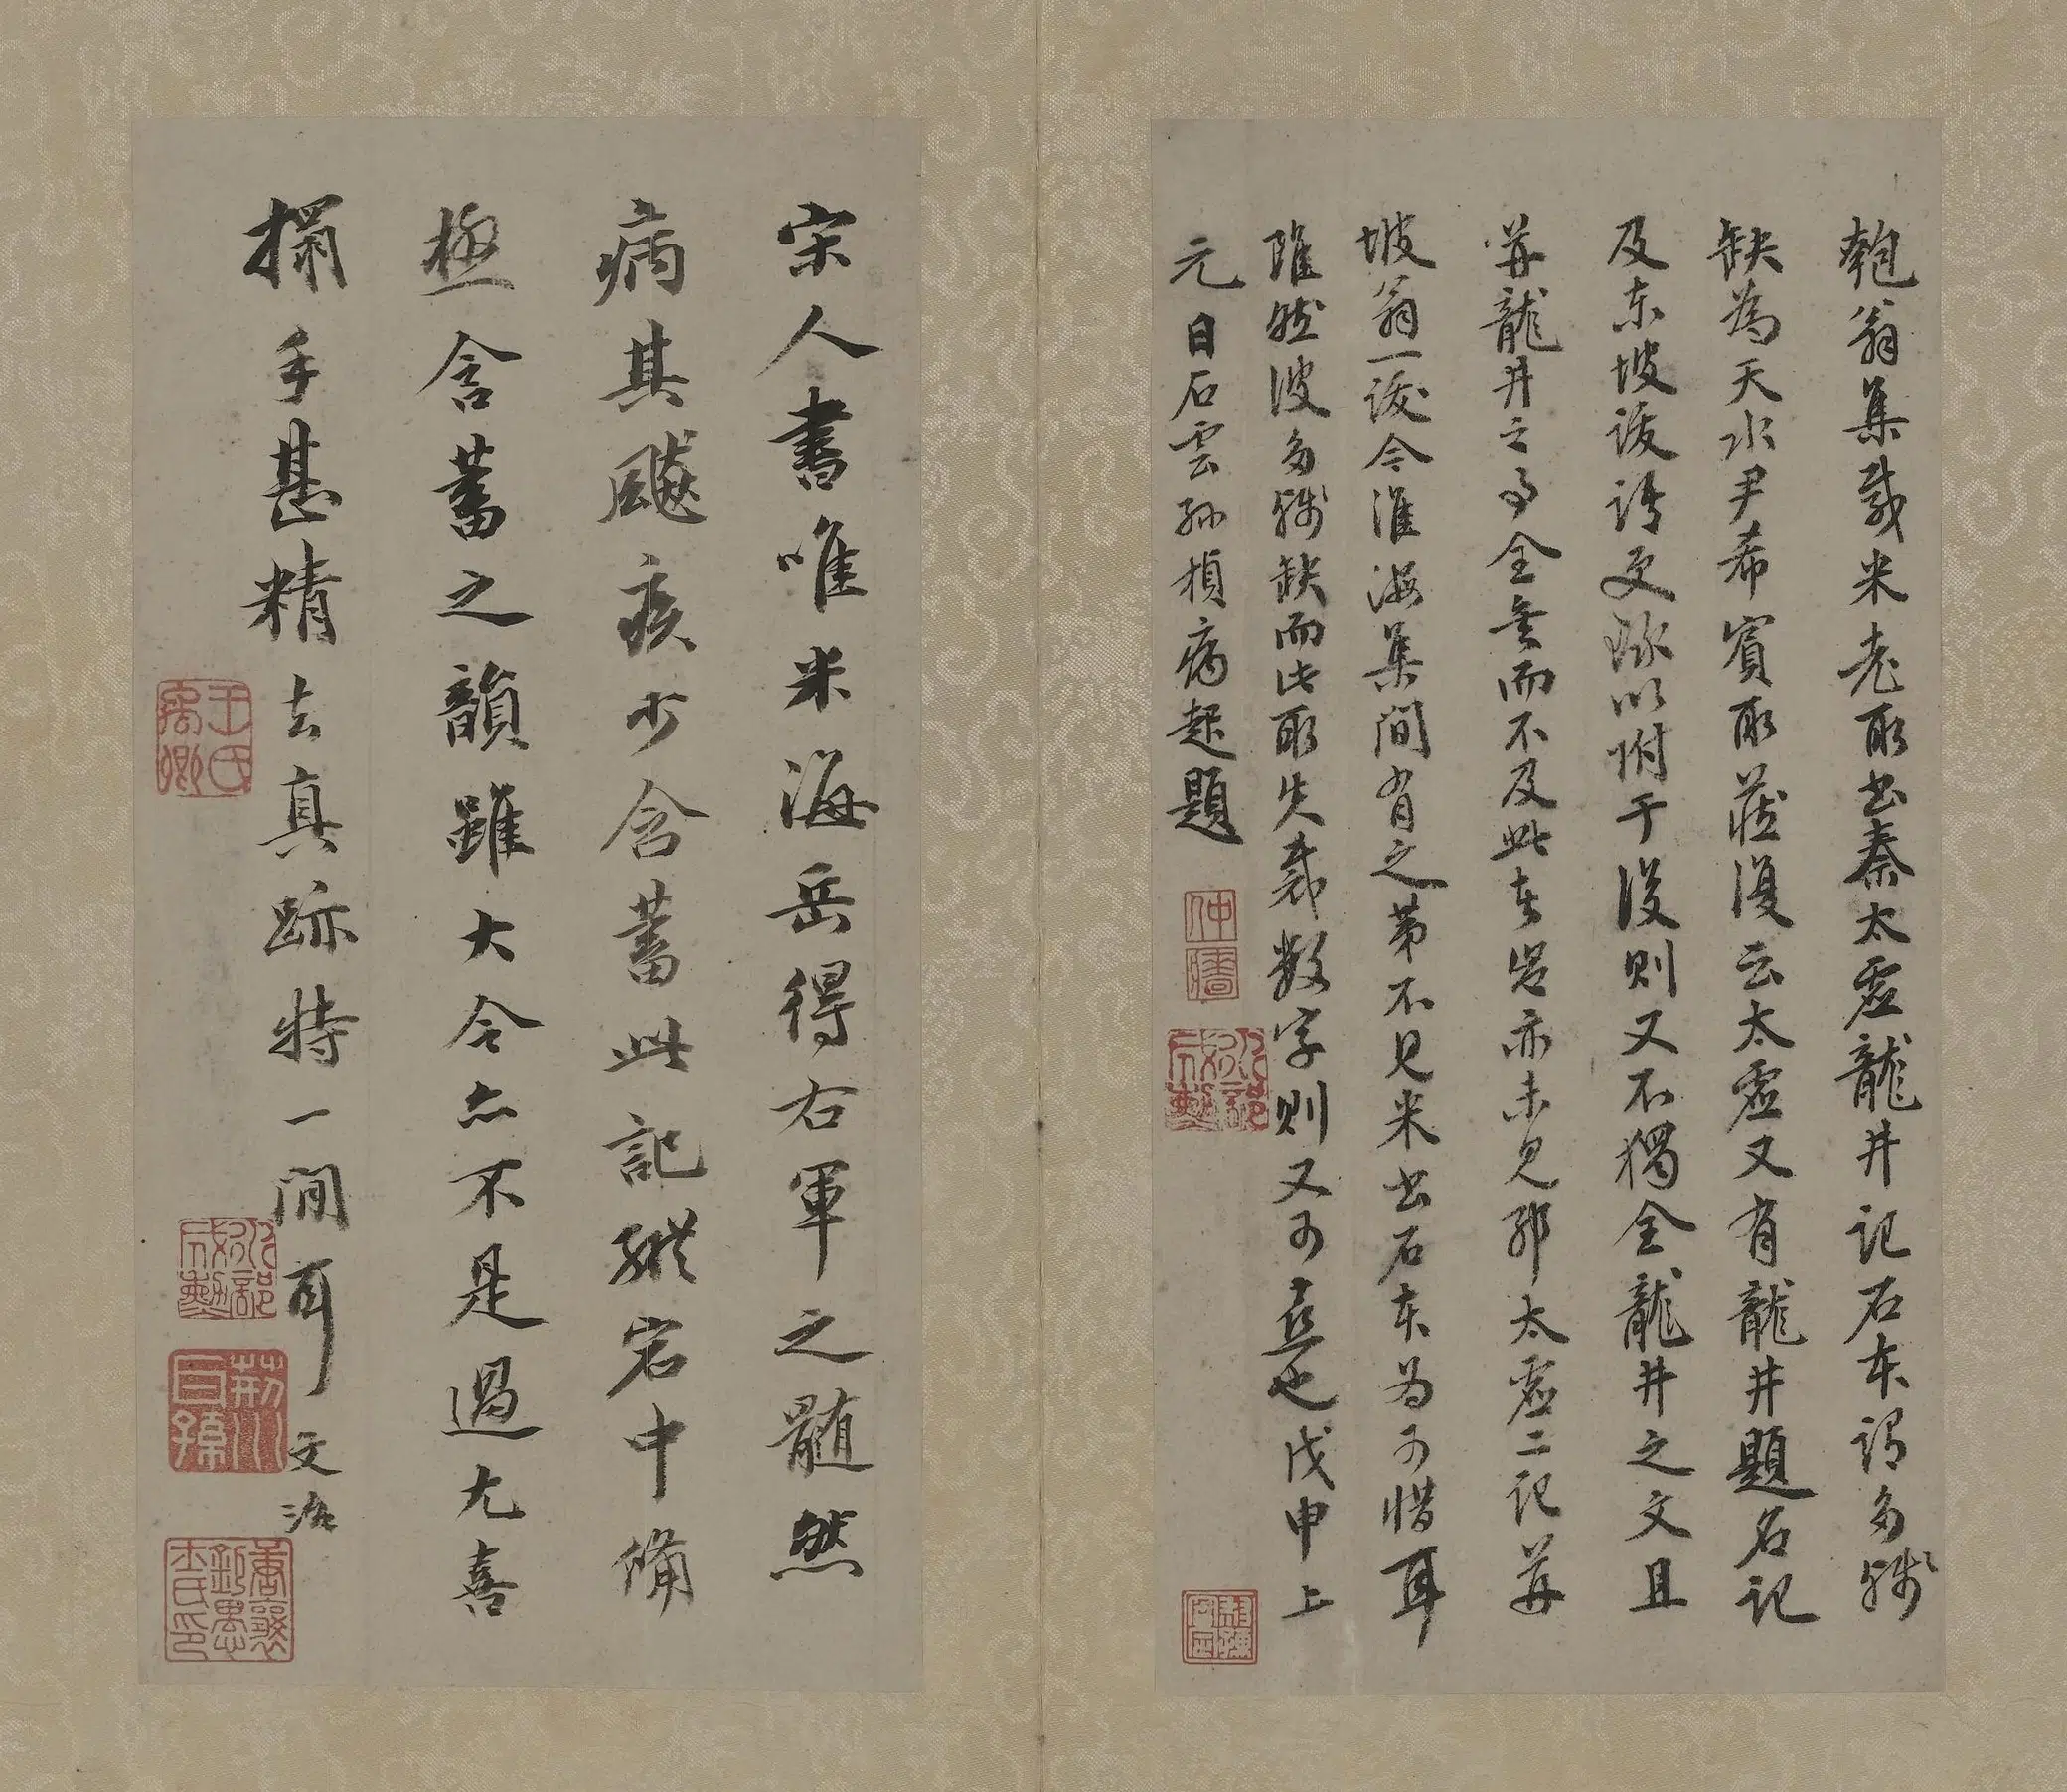 匏翁集載米老所書秦太虛龍井記石本謂多殘
缺為天水尹希賓所藏復云太虛又有龍井題名記
及東坡跋語更琢以附于後則又不獨全龍井之文且
幷龍井之事全矣而不及此本豈亦未見耶太虛二記幷
坡翁一跋今淮海集間有之第不見米書石本為可惜耳
雖然彼多殘缺而此所失裁數字則又可喜也戊申上
元日石雲孫楨病起題
仲牆
宋人書唯米海岳得右軍之髓然
病其飈疾少含蓄此記縱宕中備
極含蓄之韻雖大令亦不是過尤喜
搨手甚精去真跡特一間耳 文治
王氏禹卿
荊川巨孫